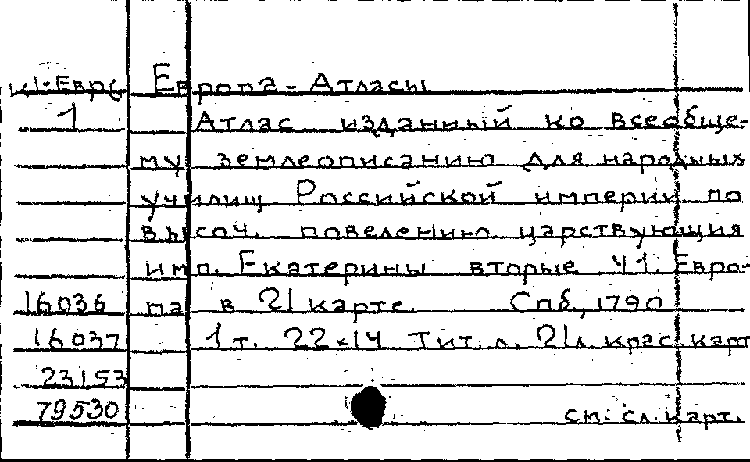 К1-Евр Европа - Атласы
1 Атлас изданный ко всеобще-
му землеописанию для народных
училищ Российской империи по
высоч. повелению царствующия
имп. Екатерины вторые Ч1. Евро-
16036 па в 21 карте. Спб, 1790
16037 1т. 22×14 Тит. л. 21л. крас. карт
23153
79530 см. сл. карт.